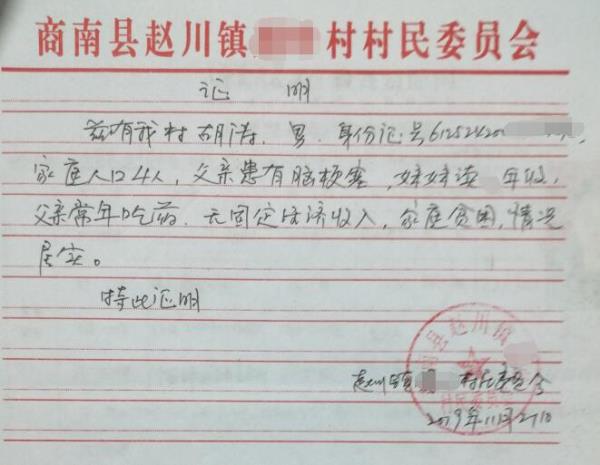 商南县赵川镇 村村民委员会
证 明
兹有我村胡涛,男,身份证号61252420
家庭人口4人,父亲患有脑梗塞,妹妹读 年级,
父亲常年吃药,无固定经济收入,家庭贫困,情况
居实。
特此证明
赵川镇 村民委员会
2019年11月27日